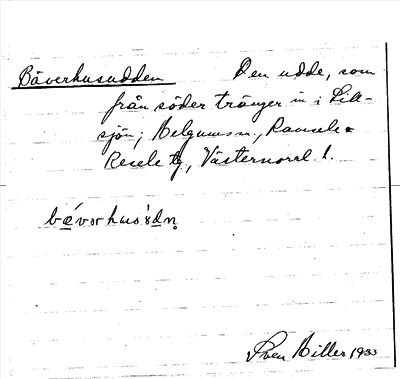 Bäverhusudden Den udde, som
från söder tränger in i Lill-
sjön; Helgumsn., Ramsele o
Resele tg, Västernorrl. l.
bävorhusúdn̥
Sven Hiller 1933